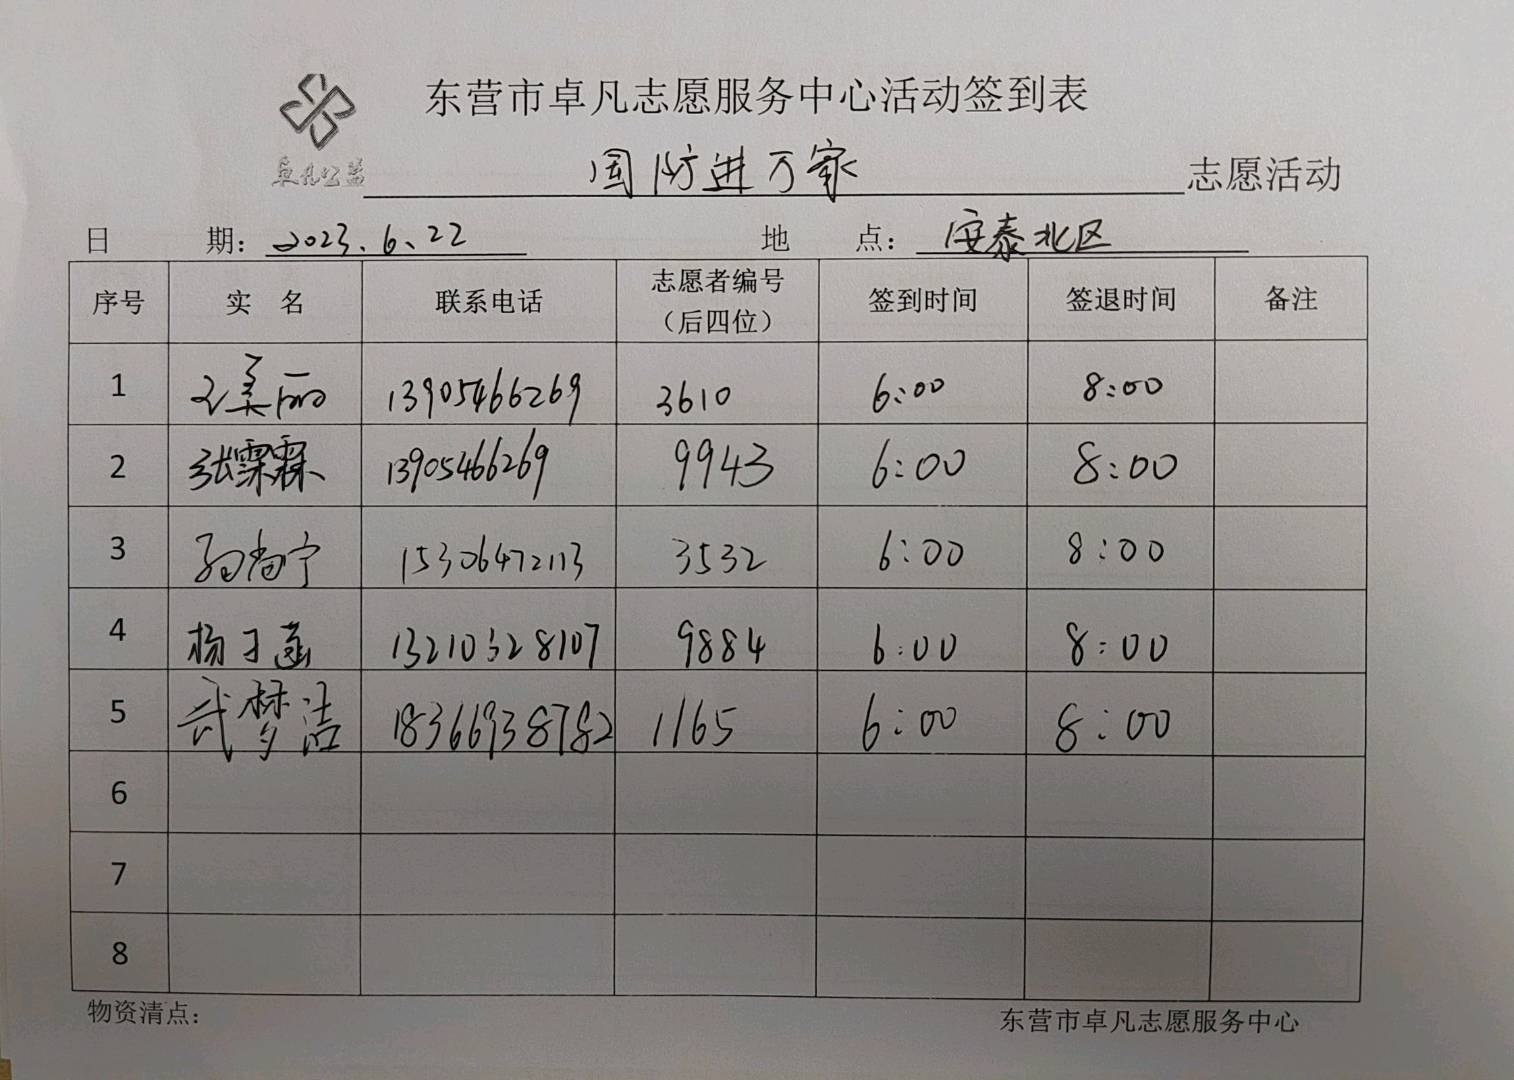 东营市卓凡志愿服务中心活动签到表
卓凡公益
国防进万家 志愿活动
日 期: 2023.6.22 地 点: 安泰北区
序号 实 名 联系电话 志愿者编号（后四位） 签到时间 签退时间 备注
1 王美丽 13905466269 3610 6:00 8:00
2 张霖霖 13905466269 9943 6:00 8:00
3 宁 15306472113 3532 6:00 8:00
4 杨子菡 13210328107 9884 6:00 8:00
5 武梦洁 18366938782 1165 6:00 8:00
6
7
8
物资清点:
东营市卓凡志愿服务中心